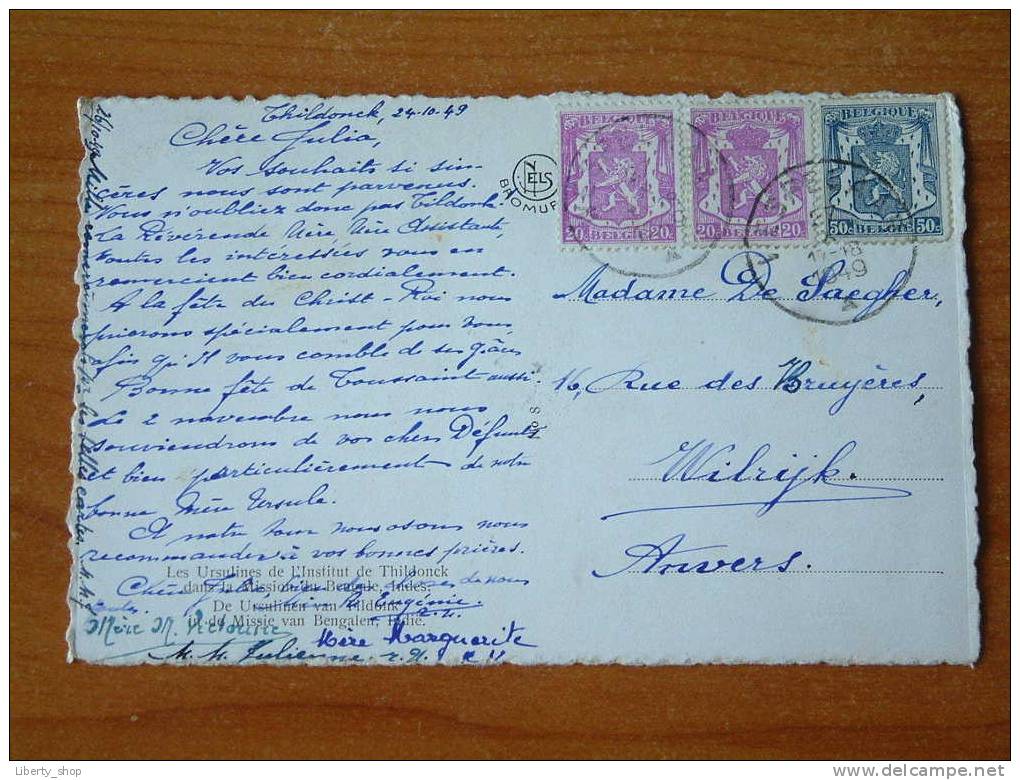 Thildonck, 24-10-49
Chère Julia,
Vos souhaits si sin-
cères nous sont parvenus.
Vous n'oubliez donc pas Tildonk.
La Révérende Mère, Mère Assistante,
toutes les intéressées vous en
remercient bien cordialement.
A la fête du Christ-Roi nous
prierons spécialement pour vous
afin qu'Il vous comble de ses grâces
Bonne fête de Toussaint aussi.
Le 2 novembre nous nous
souviendrons de vos chers Défunts
et bien particulièrement de notre
bonne Mère Ursule.
A notre tour nous osons nous
recommander à vos bonnes prières.
Chère Julia, bien des choses de nous
toutes. M. Eugénie.
Mère M. Victorine
Mère Marguerite
M. M. Julienne. r. U.
Les Ursulines de l'Institut de Thildonck
dans la Mission du Bengale, Indes.
De Ursulinen van Tildonk
in de Missie van Bengalen, Indië.
NELS
BROMUR
BELGIQUE
20c 20c
BELGIE
BELGIQUE
20c 20c
BELGIE
BELGIQUE
50c 50c
BELGIE
17-18
49
A
Madame De Saegher,
16, Rue des Bruyères,
Wilrijk.
Anvers.
Liberty_shop
delcampe.net